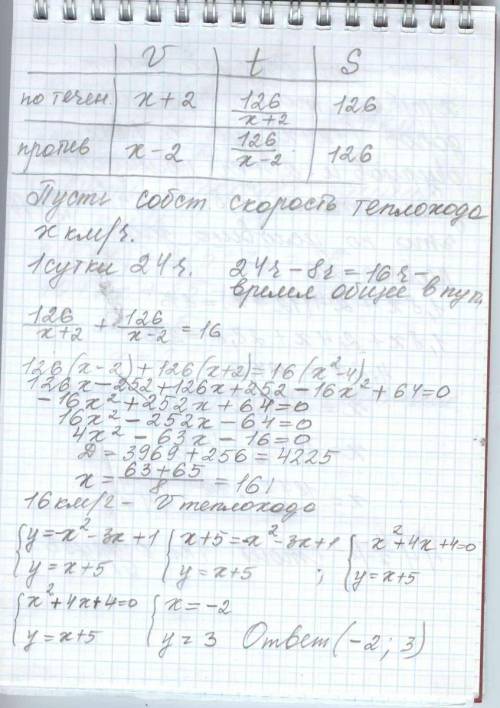 V t S
по течен. x+2 126/(x+2) 126
против x-2 126/(x-2) 126
Пусть собст скорость теплохода
x км/ч.
1 сутки 24ч. 24ч-8ч=16ч-
время общее в пути
126/(x+2) + 126/(x-2) = 16
126(x-2)+126(x+2)=16(x²-4)
126x-252+126x+252-16x²+64=0
-16x²+252x+64=0
16x²-252x-64=0
4x²-63x-16=0
D=3969+256=4225
x=(63+65)/8=16
16 км/ч - V теплохода
{y=-x²-3x+1 {x+5=-x²-3x+1 {x²+4x+4=0
{y=x+5 {y=x+5 ; {y=x+5
{x²+4x+4=0 {x=-2
{y=x+5 {y=3 Ответ (-2; 3)